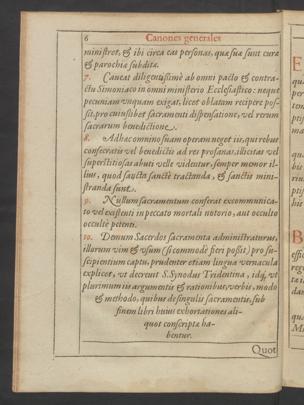 6 Canones generales
ministret, & ibi circa eas personas, quæ suæ sunt curæ
& parochiæ subditæ.
7. Caueat diligentissimè ab omni pacto & contra-
ctu Simoniaco in omni ministerio Ecclesiastico: neque
pecuniam vnquam exigat, licet oblatam recipere pos-
sit, pro cuiuslibet sacramenti dispensatione, vel rerum
sacrarum benedictione.
8. Ad hæc omnino suam operam neget iis, qui rebus
consecratis vel benedictis ad res profanas, illicitas vel
superstitiosas abuti velle videntur, semper memor il-
lius, quod sancta sanctè tractanda, & sanctis mini-
stranda sunt.
9. Nullum sacramentum conferat excommunica-
to vel existenti in peccato mortali notorio, aut occulto
occultè petenti.
10. Demum Sacerdos sacramenta administraturus,
illorum vim & vsum (si commodè fieri possit) pro su-
scipientium captu, prudenter etiam lingua vernacula
explicet, vt decreuit S. Synodus Tridentina, idq, vt
plurimum iis argumentis & rationibus, verbis, modo
& methodo, quibus de singulis sacramentis, sub
finem libri huius exhortationes ali-
quot conscriptæ ha-
bentur.
Quot